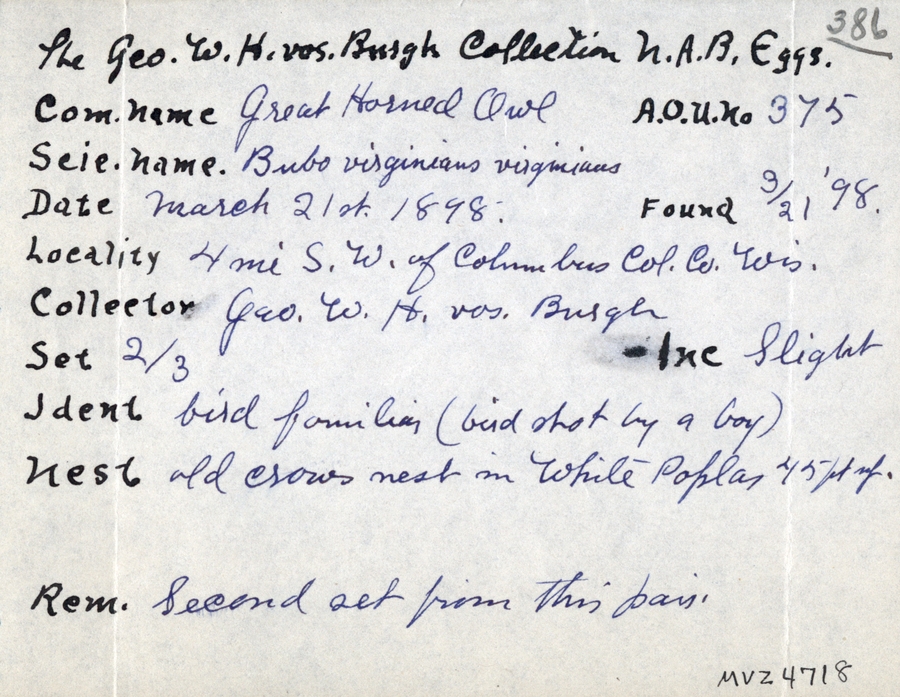 386
The Geo. W. H. vos. Burgh Collection N.A.B. Eggs.
Com. name Great Horned Owl A.O.U. No 375
Scie. name. Bubo virginians virginians
Date March 21st. 1898. Found 3/21 '98.
Locality 4 mi S. W. of Columbus Col. Co. Wis.
Collector Geo. W. H. vos. Burgh
Set 2/3 Inc Slight
Ident bird familiar (bird shot by a boy)
Nest old crows nest in White Poplar 45 ft up.
Rem. Second set from this pair.
MVZ 4718